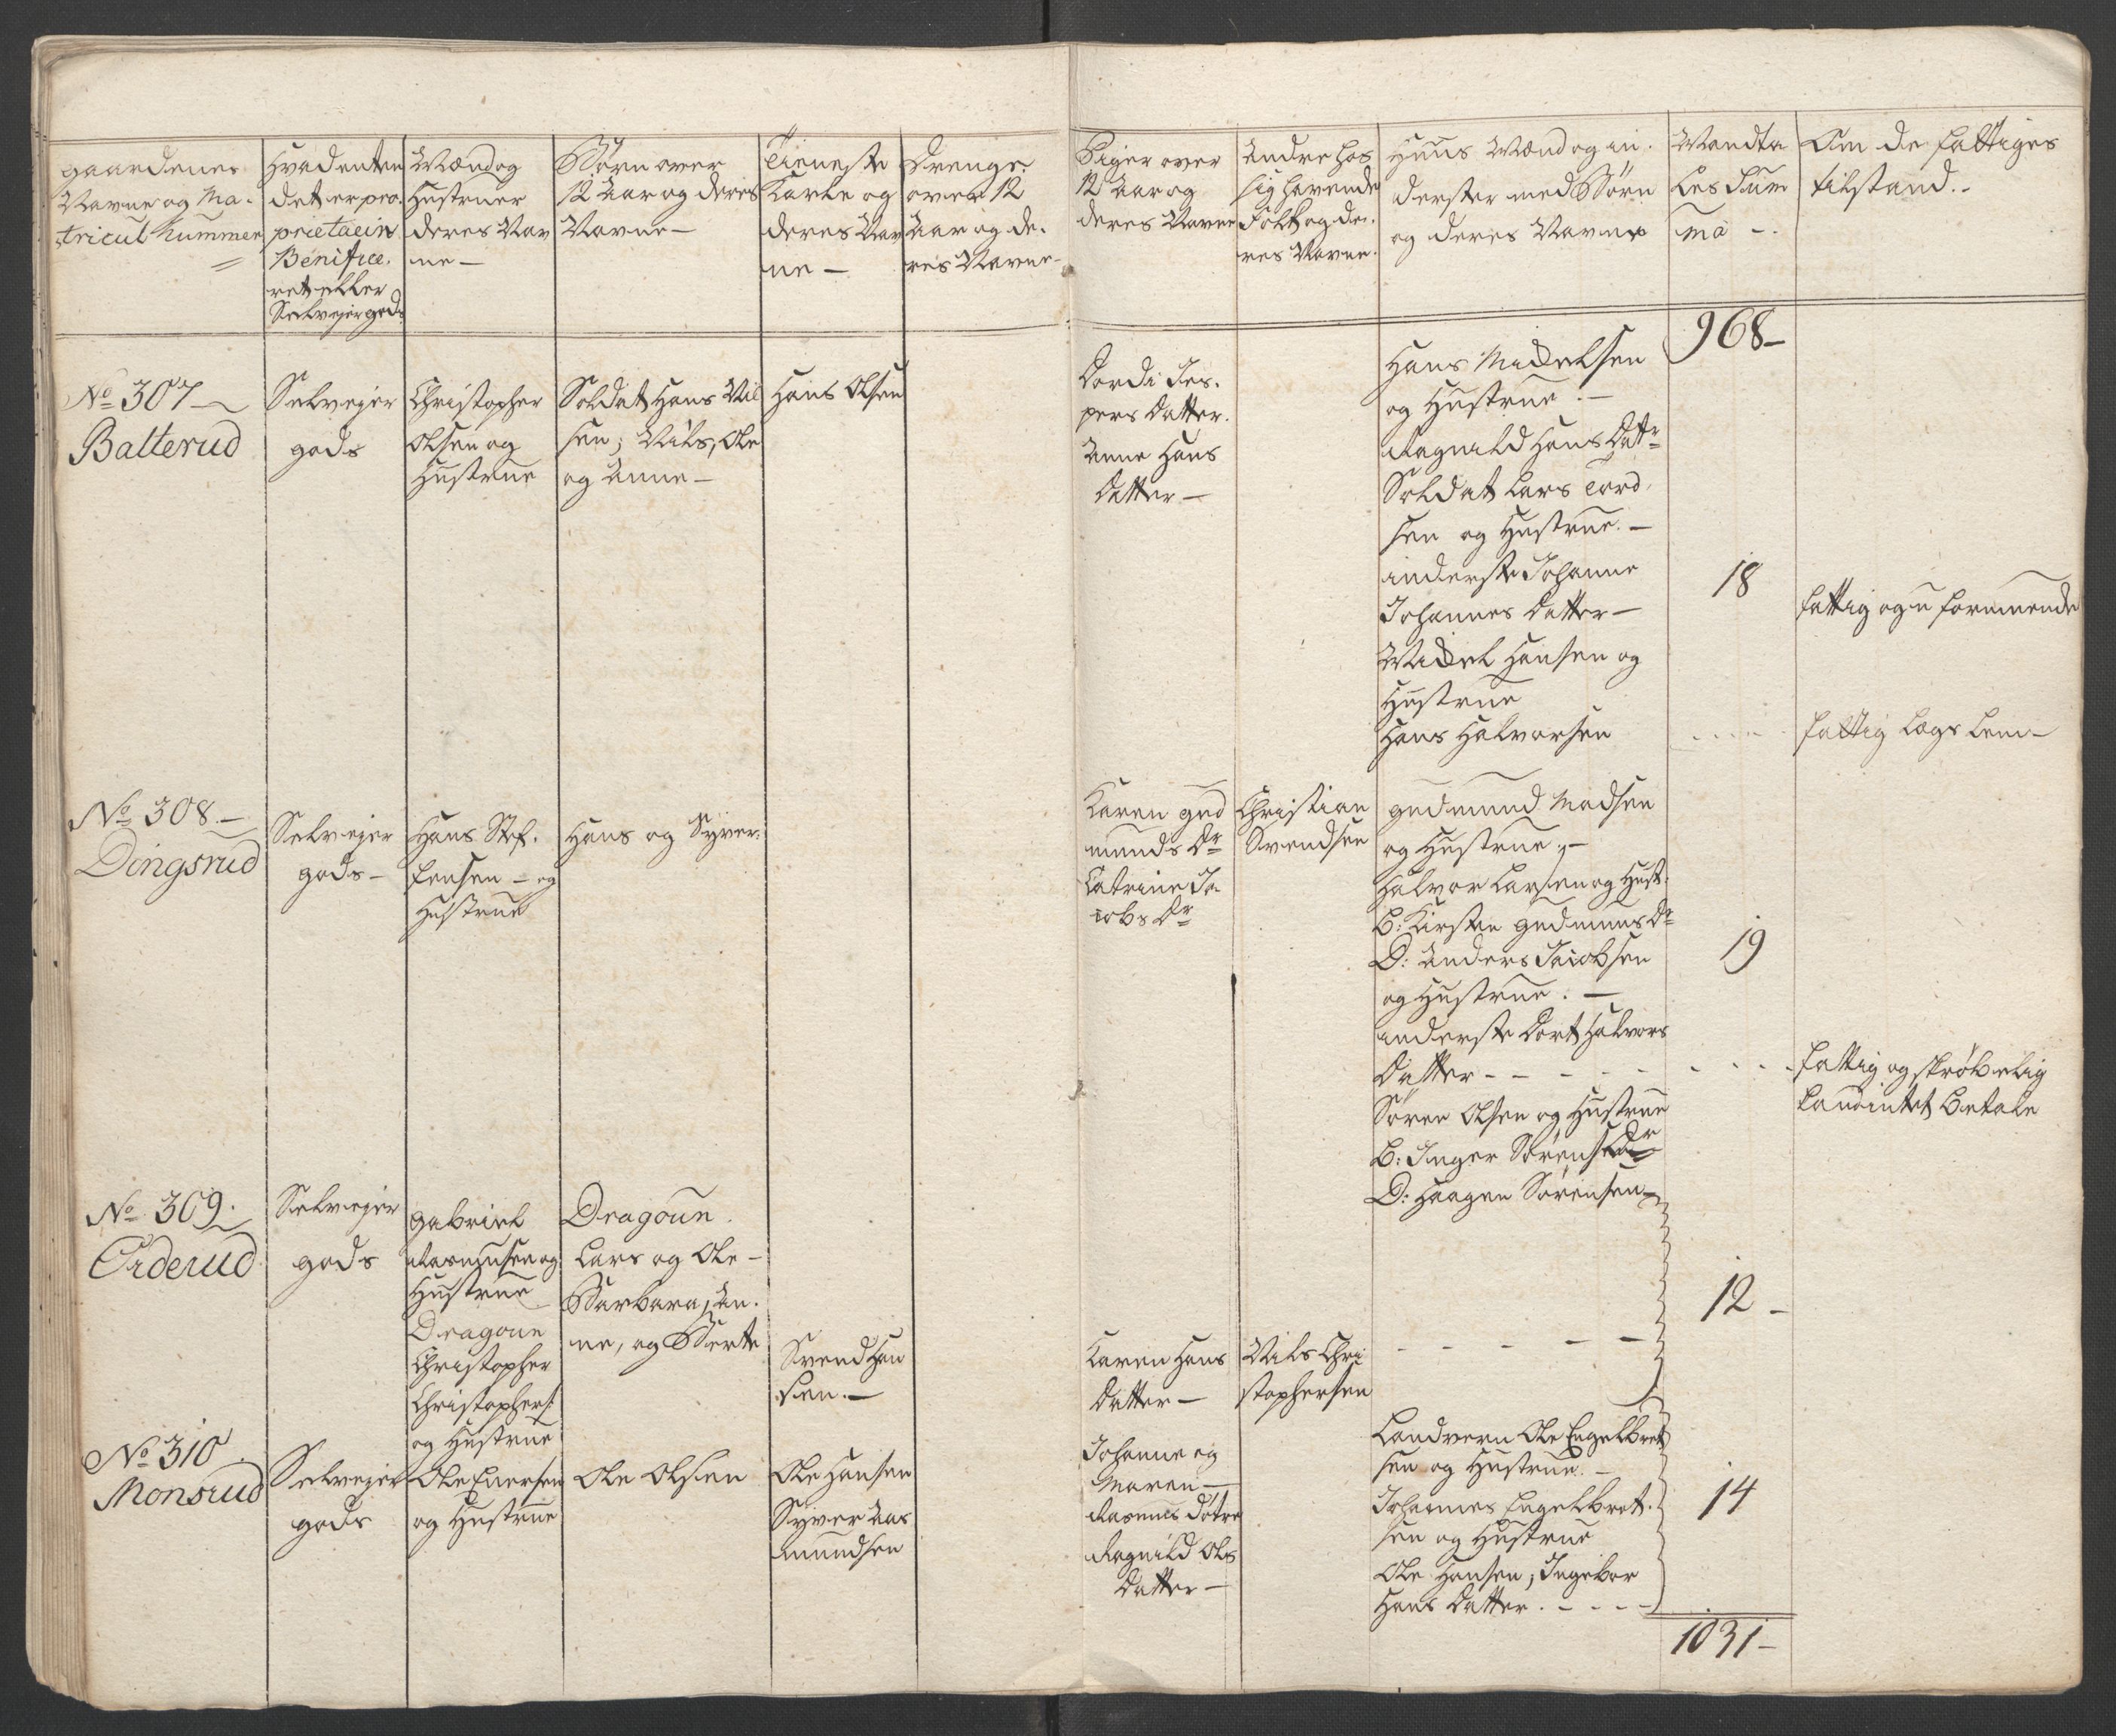 gaardenes
Navne og Ma-
tricul Nummer
Hvad enten
det er pro-
prietaein
Benificee-
ret eller
Selvejergods
Mænd og
Hustruer
deres Nav
ne —
Børn over
12 Aar og deris
Navne —
Tieneste
Karle og
deres Nav
ne —
Drenge
over 12
Aar og de-
res Navne —
Piger over
12 Aar og
deres Navne
Andre hos
sig havende
Folk og de-
res Navne.
Huus Mænd og in-
derster med Børn
og deres Navne
Mandta
les Sum
ma —
Om de fattiges
tilstand. —
968 —
No 307 —
Balterud
Selvejer
gods
Christopher
Olsen og
Hustrue
Soldat Hans Nil
sen; Nils, Ole
og Anne —
Hans Olsen
Dordi Jes-
pers Datter.
Anne Hans
Datter —
Hans Mickelsen
og Hustrue. —
Ragnild Hans Dattr
Soldat Lars Tord
sen og Hustrue. —
inderste Johanne
Johannes Datter —
Mickel Hansen og
Hustrue
Hans Halvorsen
18
fattig og u formuende
fattig Lægs Lem —
No 308 —
Dingsrud
Selvejer
gods —
Hans Stef-
fensen — og
Hustrue
Hans og Syver.
Karen gud
munds Dr
Catrine Ja
cobs Dr
Christian
Svendsen
gudmund Madsen
og Hustrue. —
Halvor Larsen og Hust.
B: Kirstie gudmuns Dr
D: Anders Jacobsen
og Hustrue. —
inderste Dort Halvors
Datter - - - - -
Søren Olsen og Hustrue
B: Inger Sørens Dr
D: Haagen Sørensen —
19
fattig og skrøbelig
kan intet betale
No 309.
Orderud
Selvejer
gods
gabriel
Rasmusen og
Hustrue
Dragoun
Christopher
Christophers:
og Hustrue
Dragoun
Lars og Ole —
Barbara, An-
ne, og Berte
Svend Han
sen. —
Karen Hans
Datter —
Nils Chri
stophersen
12 —
No 310
Monsrud
Selvejer
gods
Ole Enersen
og Hustrue
Ole Olsen
Ole Hansen
Syver Aas
mundsen
Johanne og
Maren —
Rasmus Døtre
Ragnild Ols
Datter —
Landvern Ole Engelbret
sen og Hustrue. —
Johannes Engelbret-
sen og Hustrue
Ole Hansen, Ingebor
Hans Datter. - - - -
14
1031 —